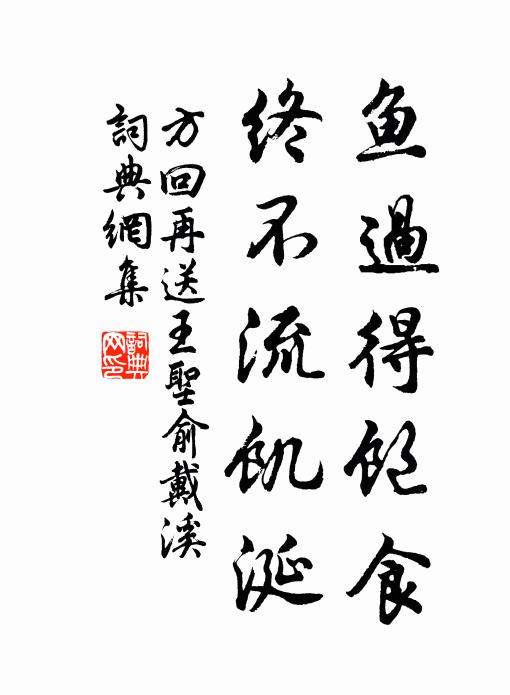 鱼過得飽食
终不流飢涎
方回再送王聖俞戴溪
詞典網集
詞典网印